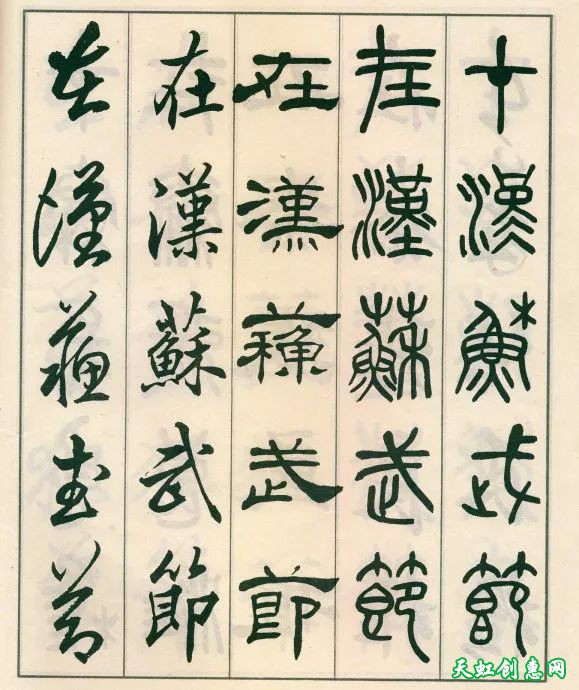 在漢蘇武節
在漢蘇武節
在漢蘇武節
在漢蘇武節
在漢蘇武節
天虹创意网